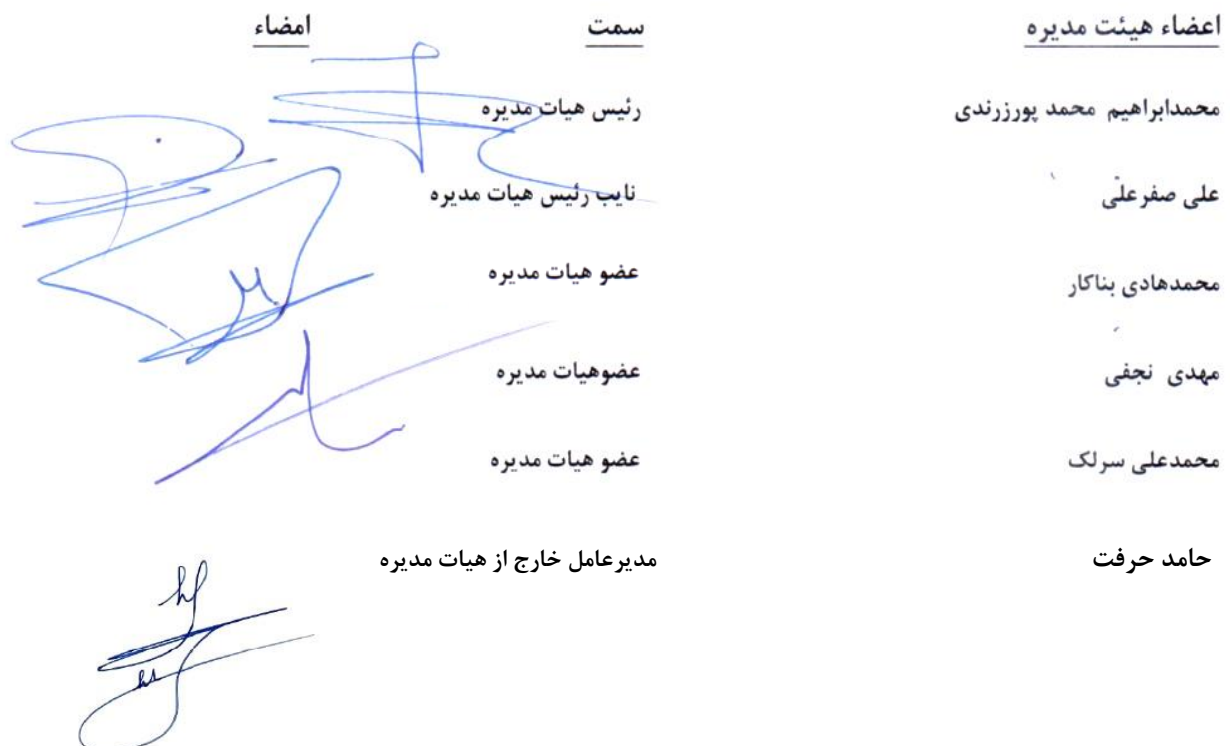 اعضاء هیئت مدیره سمت امضاء
محمدابراهیم محمد پورزرندی رئیس هیات مدیره
علی صفرعلی نایب رئیس هیات مدیره
محمدهادی بناکار عضو هیات مدیره
مهدی نجفی عضوهیات مدیره
محمدعلی سرلک عضو هیات مدیره
حامد حرفت مدیرعامل خارج از هیات مدیره